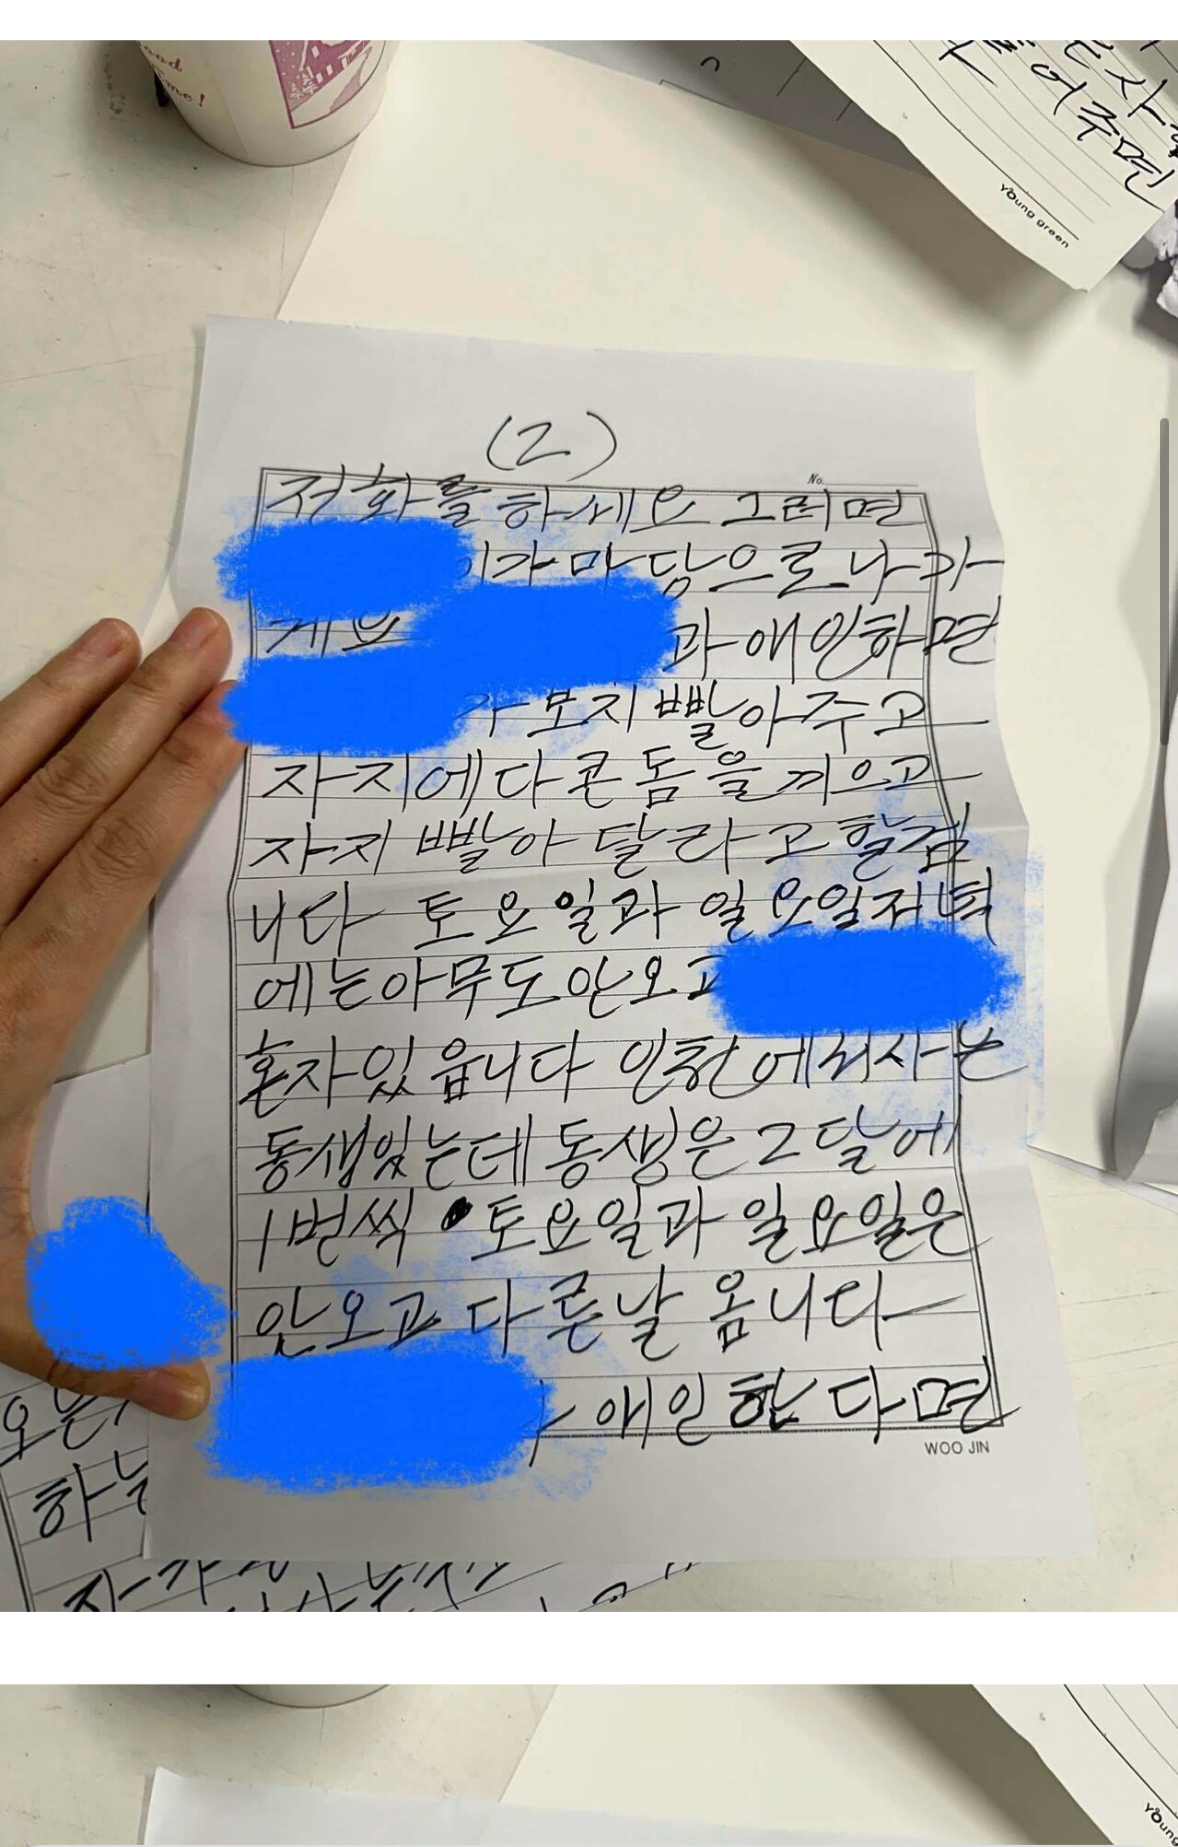 ood
me!
어주면
Young green
(2)
No.
전화를 하세요 그러면
이가 마당으로 나가
게요
과 애인하면
가 보지 빨아주고
자지에다 콘돔을 끼으고
자지 빨아 달라고 할겁
니다 토요일과 일요일저녁
에는아무도안오고
혼자있읍니다 인천에서사는
동생있는데 동생은 2달에
1번씩 토요일과 일요일은
안오고 다른날 옴니다
애인한다면
WOO JIN
하는